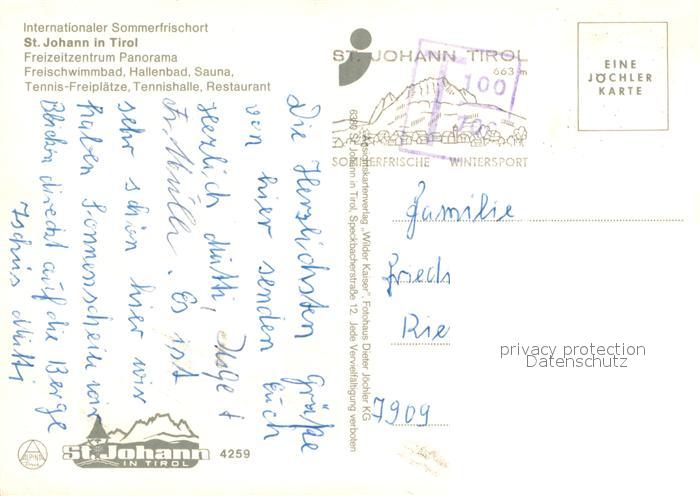 Internationaler Sommerfrischort
St. Johann in Tirol
Freizeitzentrum Panorama
Freischwimmbad, Hallenbad, Sauna,
Tennis-Freiplätze, Tennishalle, Restaurant
Die Herzlichsten Grüße
von hier senden Euch
Herzlich Mutti,
Fr. Müller. Es ist
sehr schön hier wir
haben Sonnenschein wir
Blicken direckt auf die Berge
Tschüs Mutti
ALPINA
St. Johann
IN TIROL
4259
Ansichtskartenverlag „Wilder Kaiser“, Fotohaus Dieter Jöchler KG
6380 St. Johann in Tirol, Speckbacherstraße 12. Jede Vervielfältigung verboten
ST. JOHANN TIROL
663 m
100
SOMMERFRISCHE WINTERSPORT
EINE
JÖCHLER
KARTE
Familie
Frieds
Rie
7909
privacy protection
Datenschutz